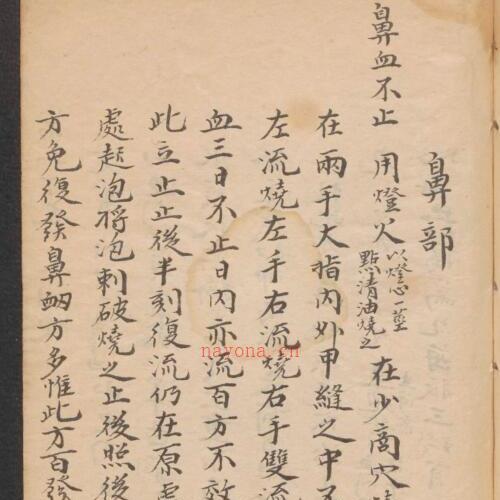 鼻部
鼻血不止 用燈火以燈心一莖點清油燒之在少商穴
在兩手大指內外甲縫之中
左流燒左手右流燒右手雙流
血三日不止日內亦流百方不效
此立止止後半刻復流仍在原處
處起泡將泡刺破燒之止後照後
方免復發鼻衄方多惟此方百發
nayona.cn